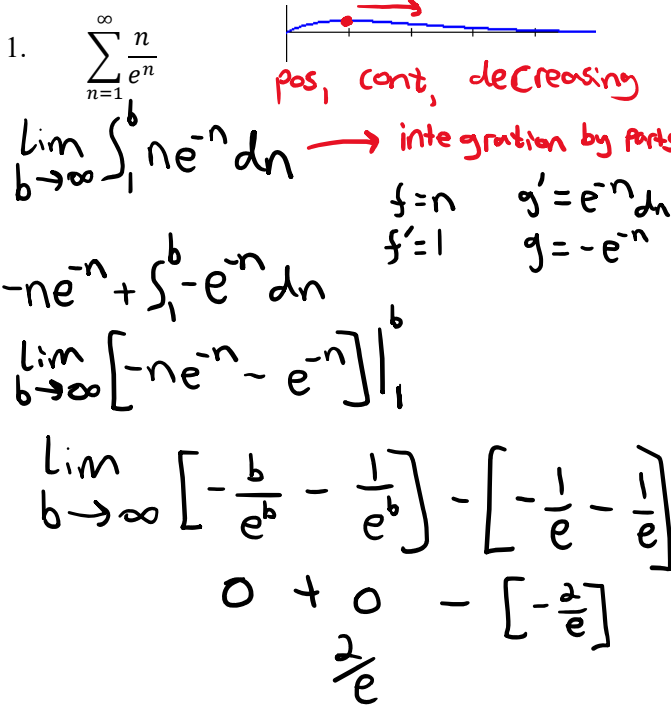 1. ∞∑n=1 n/e^n
pos, cont, decreasing
lim b→∞ ∫₁ᵇ ne⁻ⁿ dn → integration by parts
f=n g'=e⁻ⁿ dn
f'=1 g=-e⁻ⁿ
-ne⁻ⁿ + ∫₁ᵇ -e⁻ⁿ dn
lim b→∞ [-ne⁻ⁿ - e⁻ⁿ]|₁ᵇ
lim b→∞ [-b/eᵇ - 1/eᵇ] - [-1/e - 1/e]
0 + 0 - [-2/e]
2/e